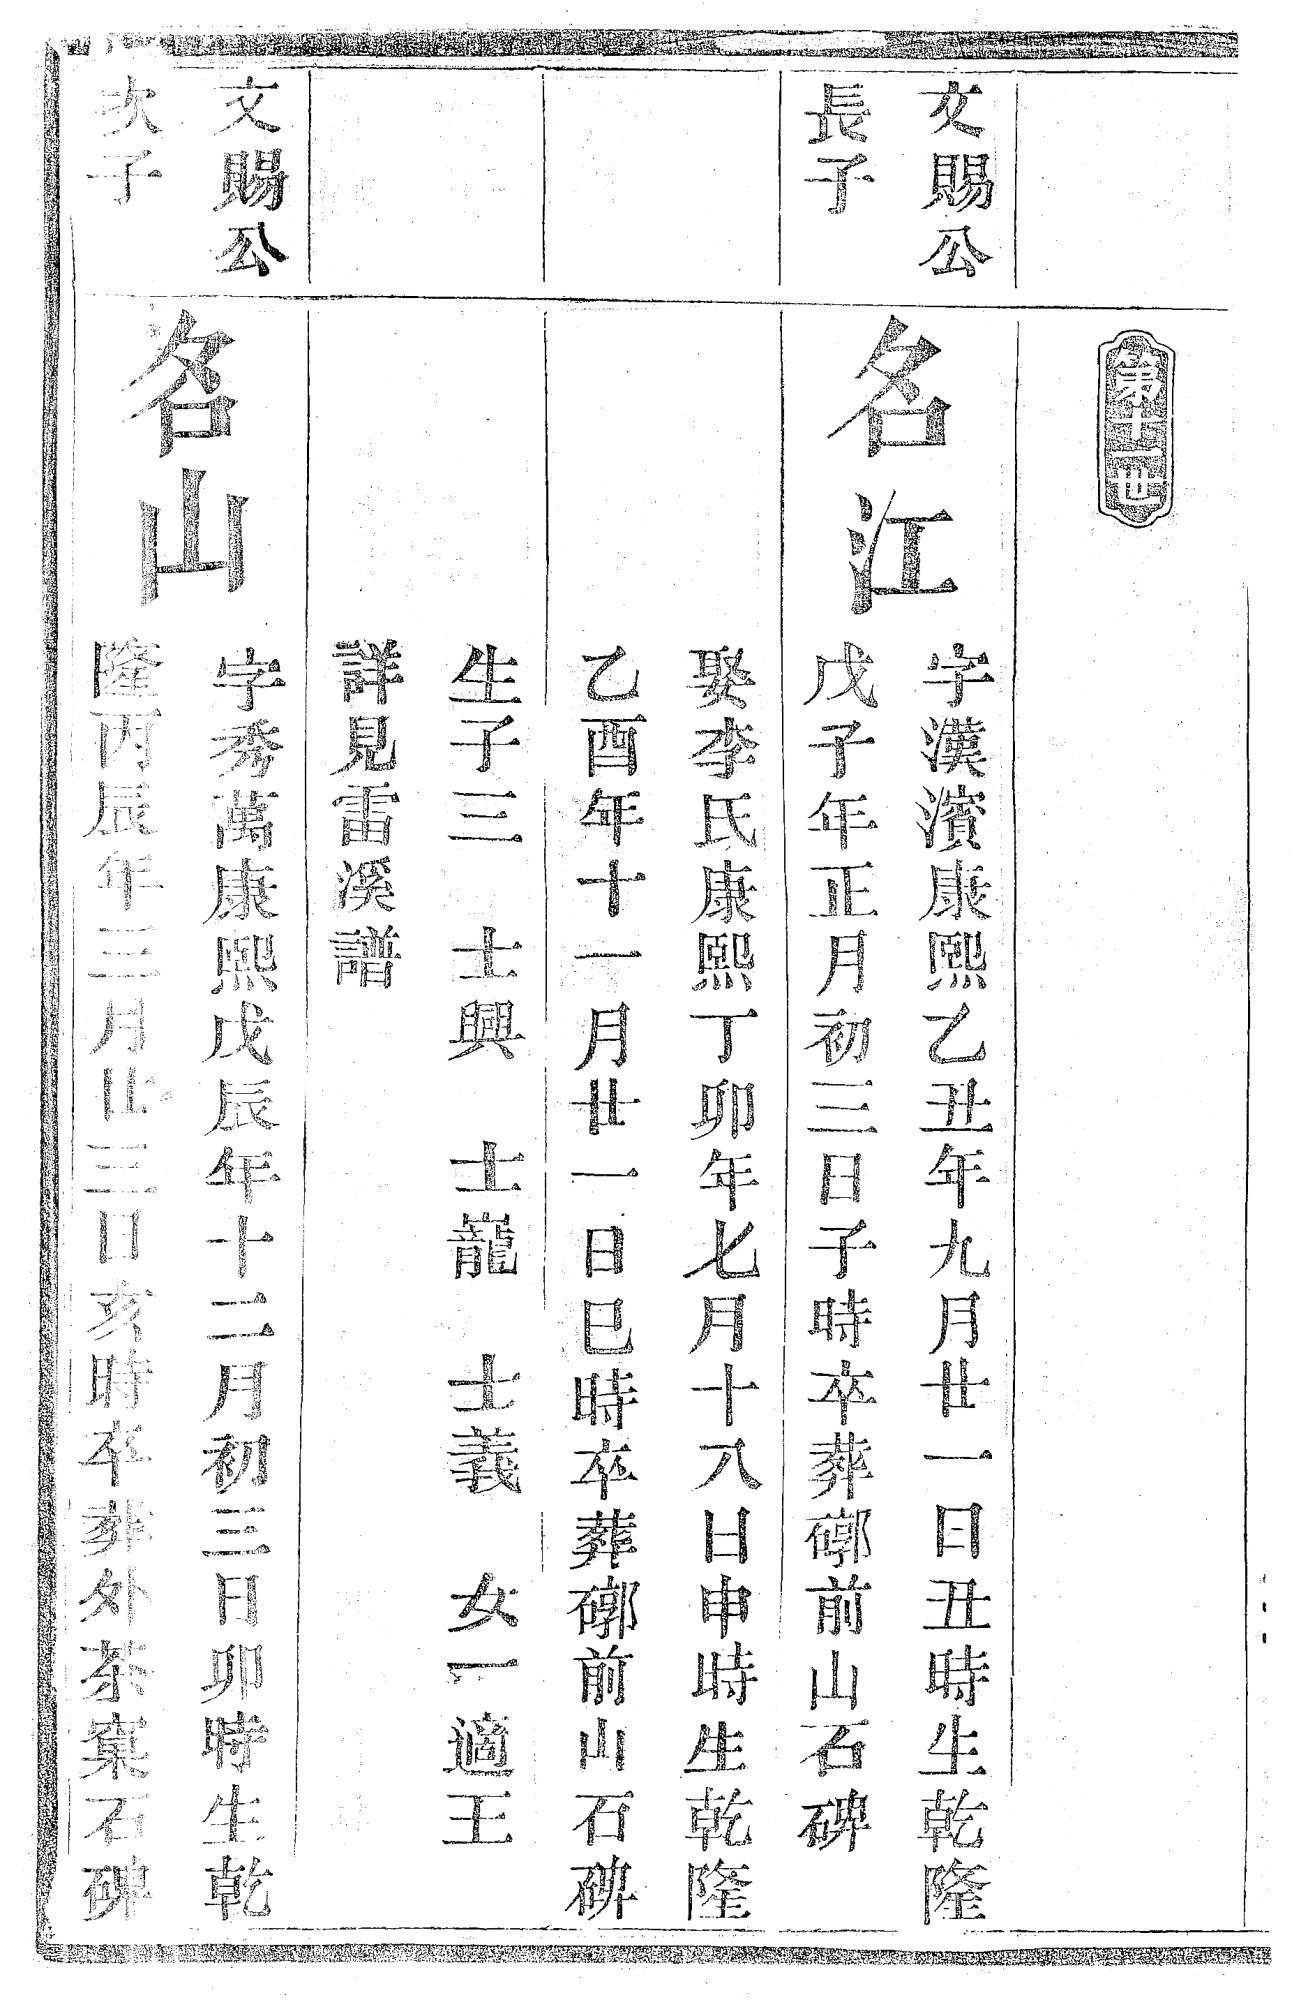 第十一世
文賜公
長子
名江
字漢濱康熙乙丑年九月廿一日丑時生乾隆
戊子年正月初三日子時卒葬磖前山石碑
娶李氏康熙丁卯年七月十八日申時生乾隆
乙酉年十一月廿一日巳時卒葬磖前山石碑
生子三 士興 士寵 士義 女一適王
詳見雷溪譜
文賜公
次子
名山
字秀萬康熙戊辰年十二月初三日卯時生乾
隆丙辰年三月廿三日亥時卒葬外茶窠石碑